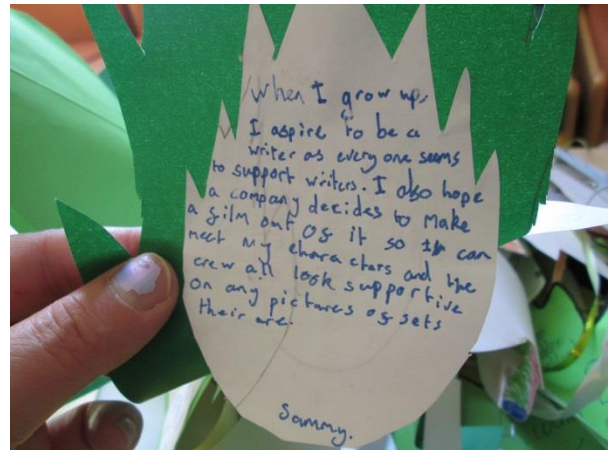 When I grow up,
I aspire to be a
writer as everyone seems
to support writers. I also hope
a company decides to make
a film out of it so I can
meet my characters and the
crew all look supportive
on any pictures of sets
their are.
Sammy.